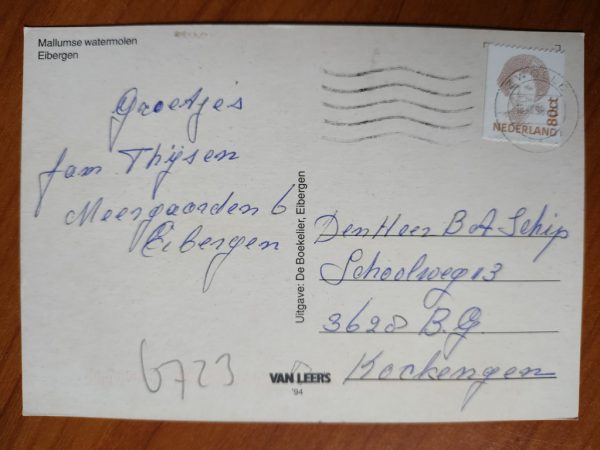 Mallumse watermolen
Eibergen
Groetjes
fam Thijsen
Meergaarden 6
Eibergen
Uitgave: De Boekelier, Eibergen
80ct
NEDERLAND
Den Heer B A Schip
Schoolweg 13
3628 B.G.
Kockengen
6723
VAN LEER'S
'94